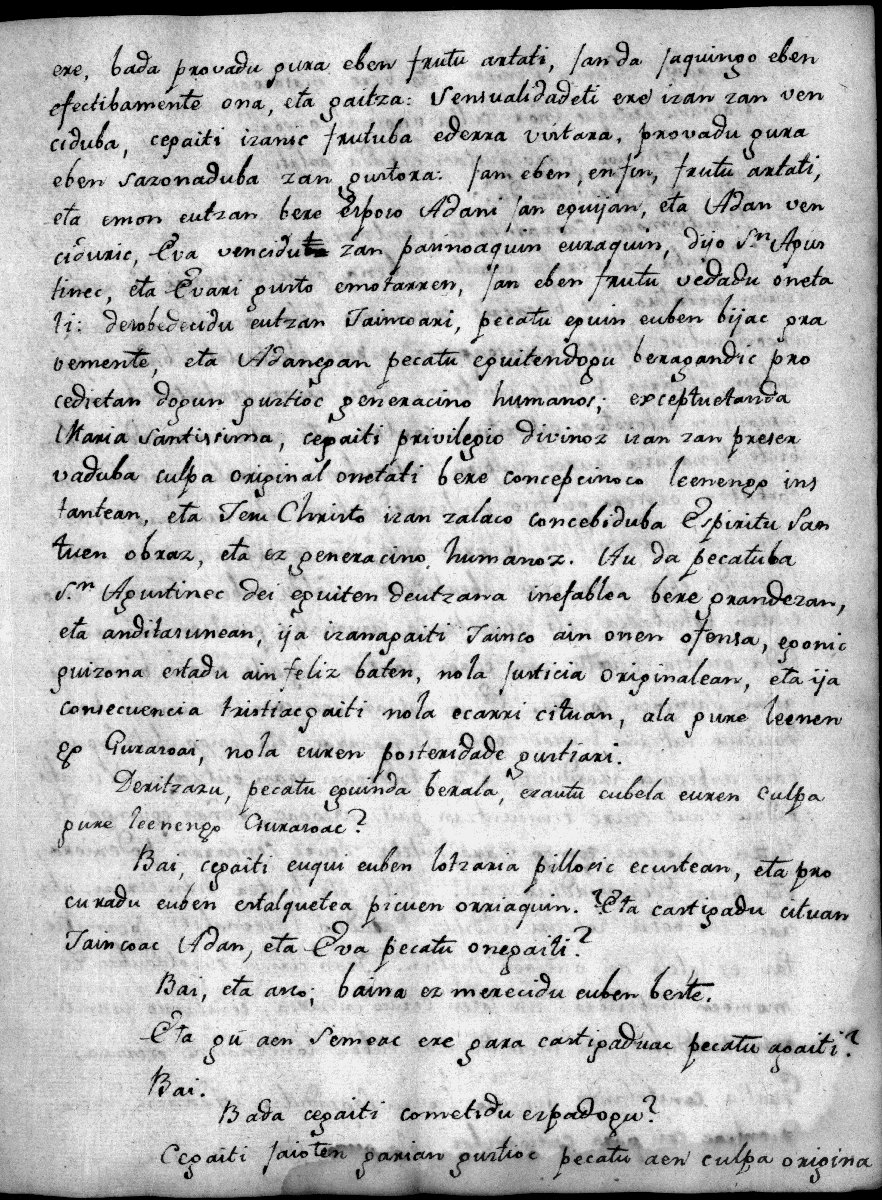 ere, bada provadu gura eben frutu artati, jan da jaquingo eben
efectibamente ona, eta gaitza: Sensualidadeti ere izan zan ven
ciduba, cegaiti izanic frutuba ederra vistara, provadu gura
eben sazonaduba zan gustora: jan eben, en fin, frutu artati,
eta emon eutzan bere Esposo Adani jan eguijan, eta Adan ven
ciduric, Eva vencidu zan parinoaquin euraquin, dijo Sn. Agus
tinec, eta Evari gusto emotarren, jan eben frutu vedadu oneta
ti: desobedecidu eutzan Jaincoari, pecatu eguin euben bijac gra
vemente, eta Adanegan pecatu eguitendogu beragandic pro
cedietan dogun gustioc generacino humanos; exceptuetanda
Maria Santissima, cegaiti privilegio divinoz izan zan preser
vaduba culpa original onetati bere concepcinoco leenengo ins
tantean, eta Jesu Christo izan zalaco concebiduba Espiritu San
tuen obraz, eta ez generacino humanoz. Au da pecatuba
Sn. Agustinec dei eguiten deutzana inefablea bere grandezan,
eta anditasunean, ija izanagaiti Jainco ain onen ofensa, egonic
guizona estadu ain feliz baten, nola justicia originalean, eta ija
consecuencia tristiacgaiti nola ecarri cituan, ala gure leenen
go Gurasoai, nola euren posteridade gustiari.
Deritzazu, pecatu eguinda berala, ezautu cubela euren culpa
gure leenengo Gurasoac?
Bai, cegaiti euqui euben lotzaria pillosic ecustean, eta pro
curadu euben estalquetea picuen orriaquin. ? Eta castigadu cituan
Jaincoac Adan, eta Eva pecatu onegaiti?
Bai, eta asco; baina ez merecidu euben beste.
Eta gu aen Semeac ere gara castigaduac pecatu agaiti?
Bai.
Bada cegaiti cometidu ezpadogu?
Cegaiti jaioten garian gustioc pecatu aen culpa origina